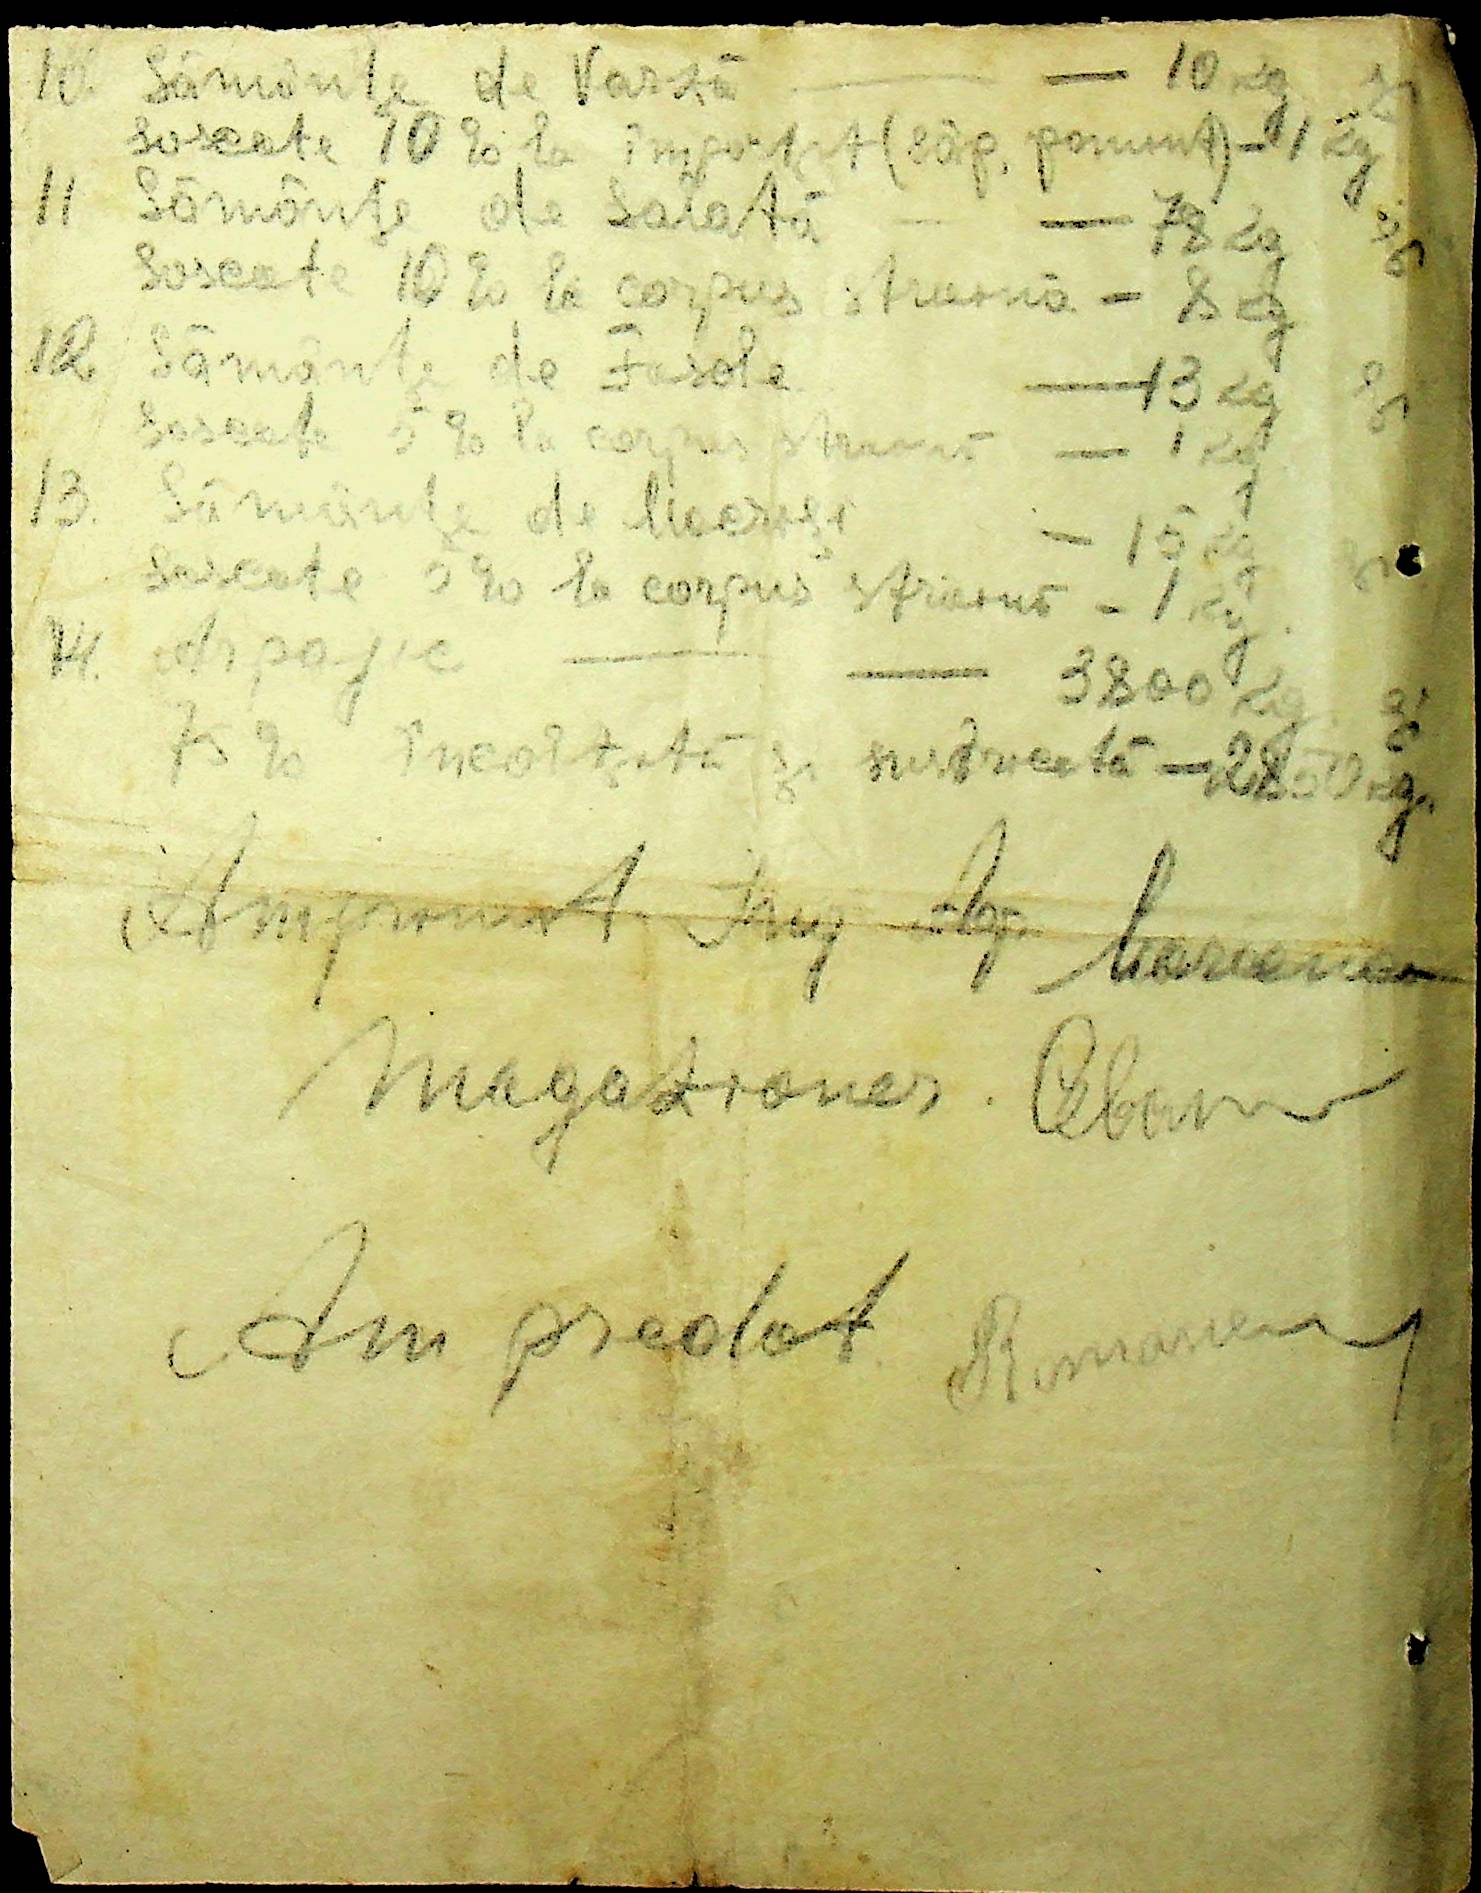 10. Sămânţe de Varză — 10 kg şi
soscate 10% la (săp. pămînt) - 1 kg
11 Sămânţe de Salată — 78 kg şi
Soscate 10% la corpus streină - 8 kg
12 Sămânţe de Fasole — 13 kg şi
soscate 5% la corpus streină — 1 kg
13. Sămânţe de - 15 kg şi
soscate 5% la corpus streină - 1 kg.
14. Arpajic — 3800 kg. şi
75% încolţită şi — 2850 kg.
Am primit Ing
Magazioner.
Am predat